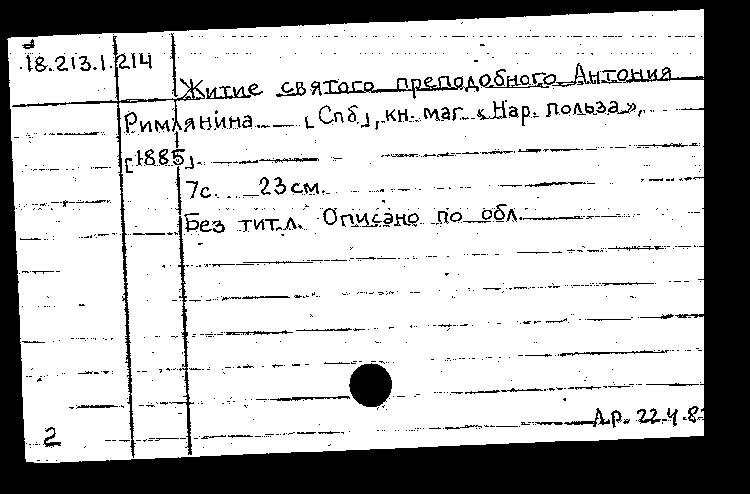 18.213.1.214
Житие святого преподобного Антония
Римлянина [Спб], кн. маг. «Нар. польза»,
[1885].
7с. 23см.
Без тит.л. Описано по обл.
2